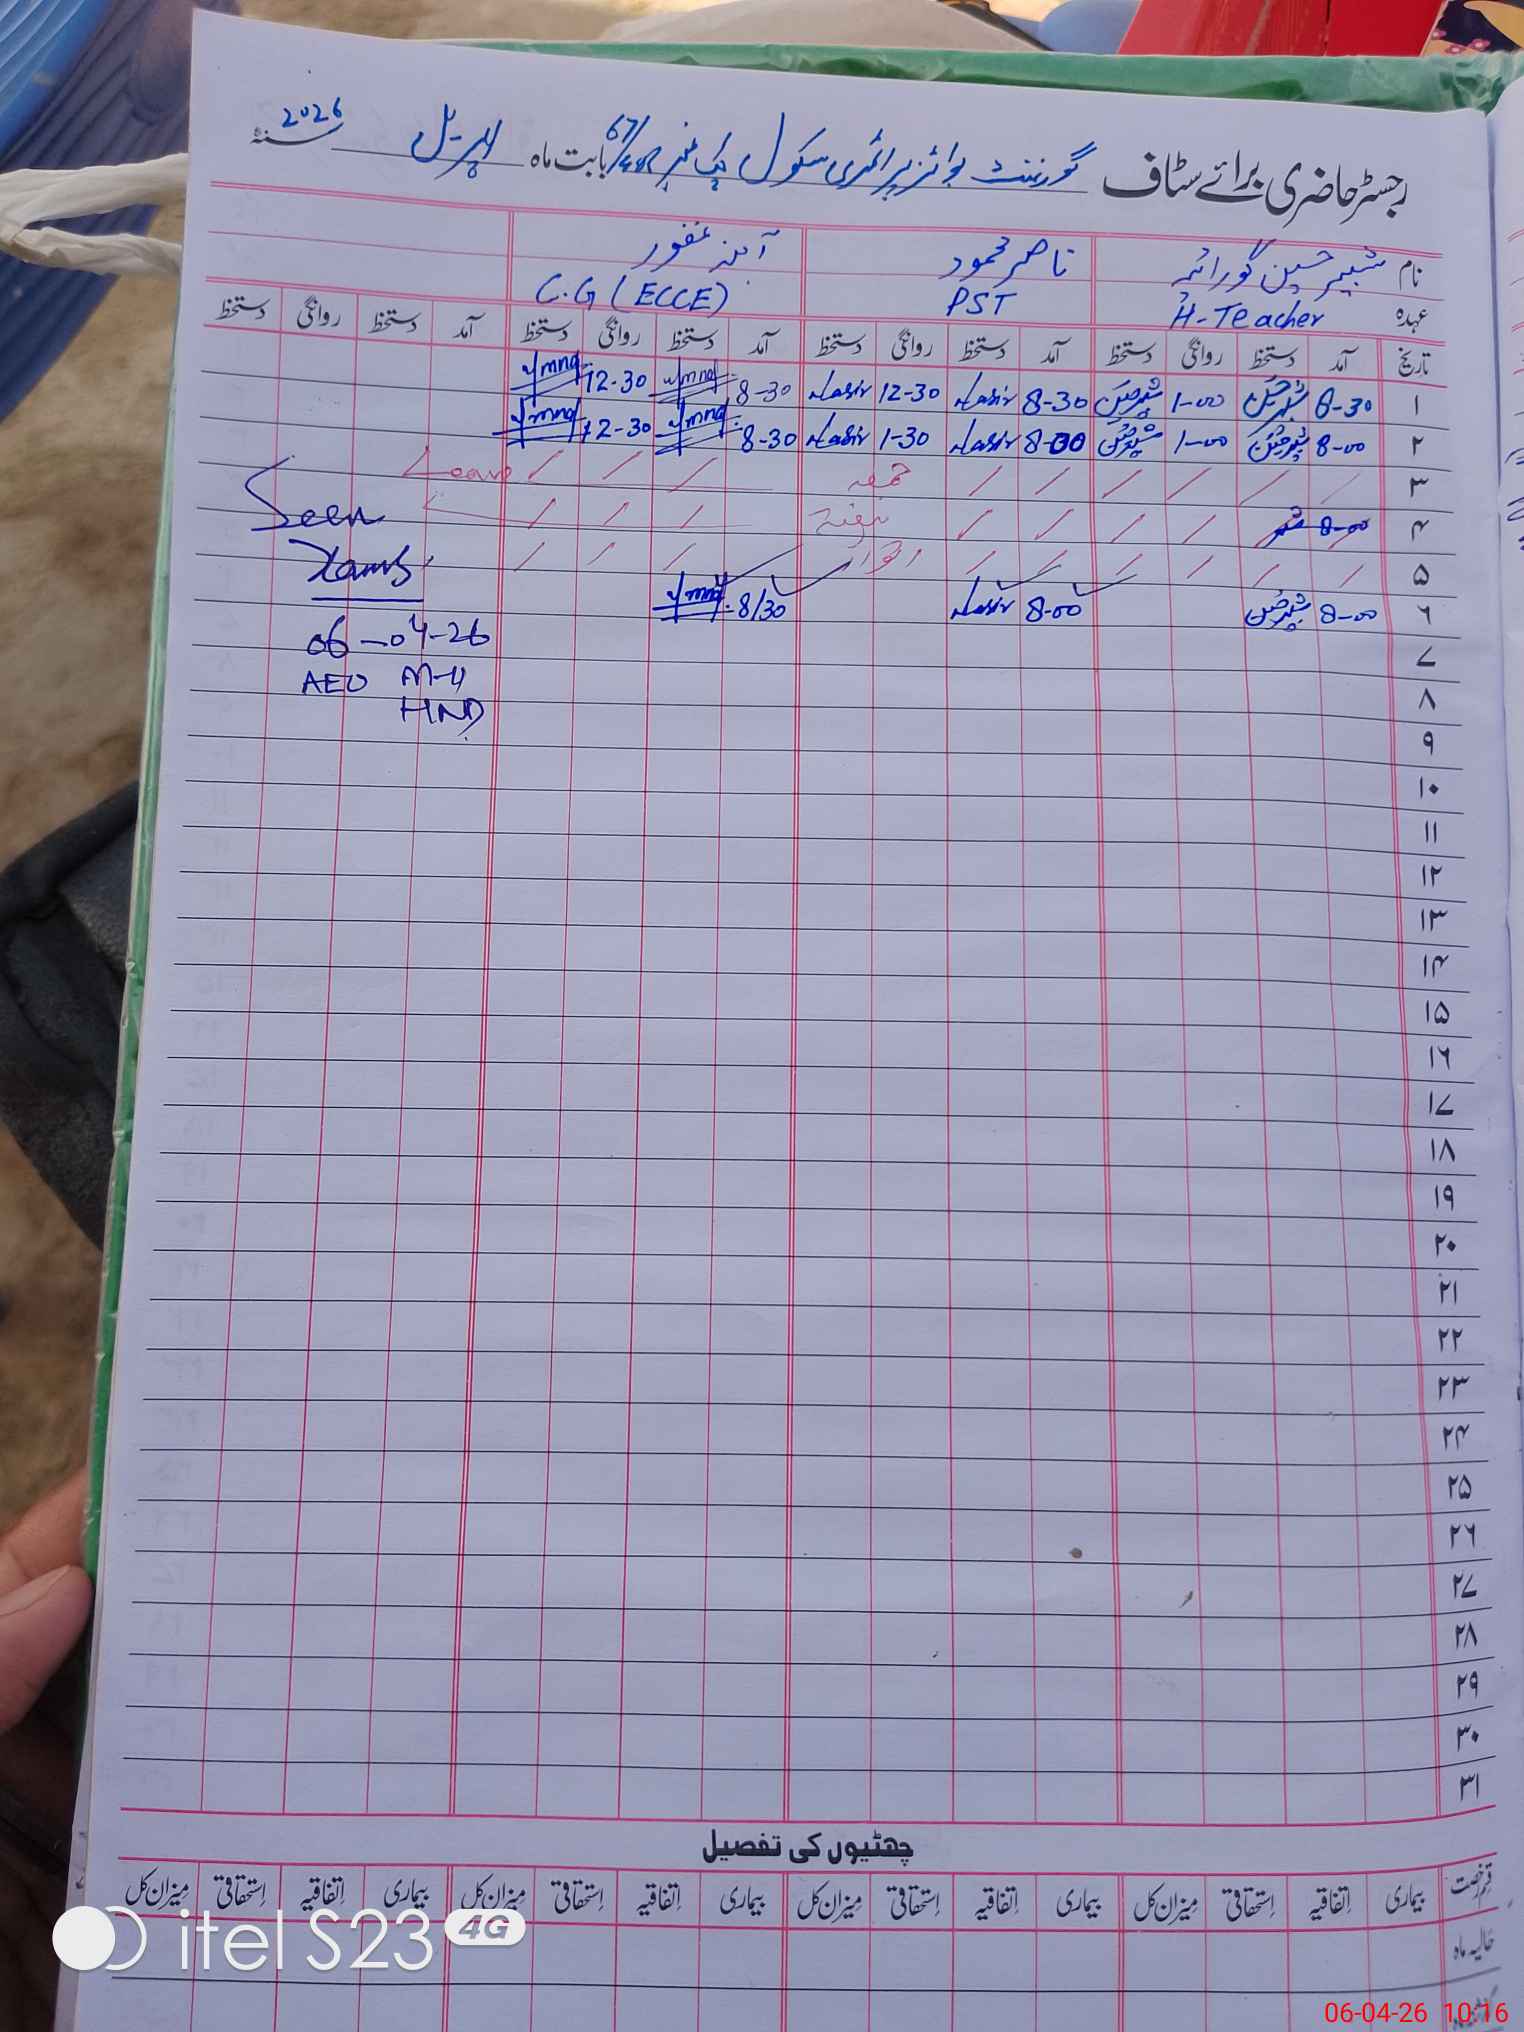 رجسٹر حاضری برائے سٹاف گورنمنٹ بوائز پرائمری سکول چک نمبر 67/4R بابت ماہ اپریل 2026 سنۂ
نام شبیر حسین ناصر محمود غفور
عہدہ H-Teacher PST C.G (ECCE)
تاریخ آمد دستخط روانگی دستخط آمد دستخط روانگی دستخط آمد دستخط روانگی دستخط آمد دستخط روانگی دستخط
۱ 8-30 شبیر حسین 1-00 شبیر حسین 8-30 Nasir 12-30 Nasir 8-30 12-30
۲ 8-00 شبیر حسین 1-00 شبیر حسین 8-00 Nasir 1-30 Nasir 8-30 12-30
۳ / / / / / / جمعہ / / / Leave
۴ 8-00 / / / / ہفتہ / / /
۵ / / / / / / اتوار / / /
۶ 8-00 شبیر حسین 8-00 Nasir 8/30
Seen
06-04-26
AEO M-4
HND
۷
۸
۹
۱۰
۱۱
۱۲
۱۳
۱۴
۱۵
۱۶
۱۷
۱۸
۱۹
۲۰
۲۱
۲۲
۲۳
۲۴
۲۵
۲۶
۲۷
۲۸
۲۹
۳۰
۳۱
چھٹیوں کی تفصیل
قسم رخصت بیماری اِتفاقیہ اِستحقاقی میزان کل بیماری اِتفاقیہ اِستحقاقی میزان کل بیماری اِتفاقیہ اِستحقاقی میزان کل بیماری اِتفاقیہ اِستحقاقی میزان کل
حالیہ ماہ
itel S23 4G
06-04-26 10:16